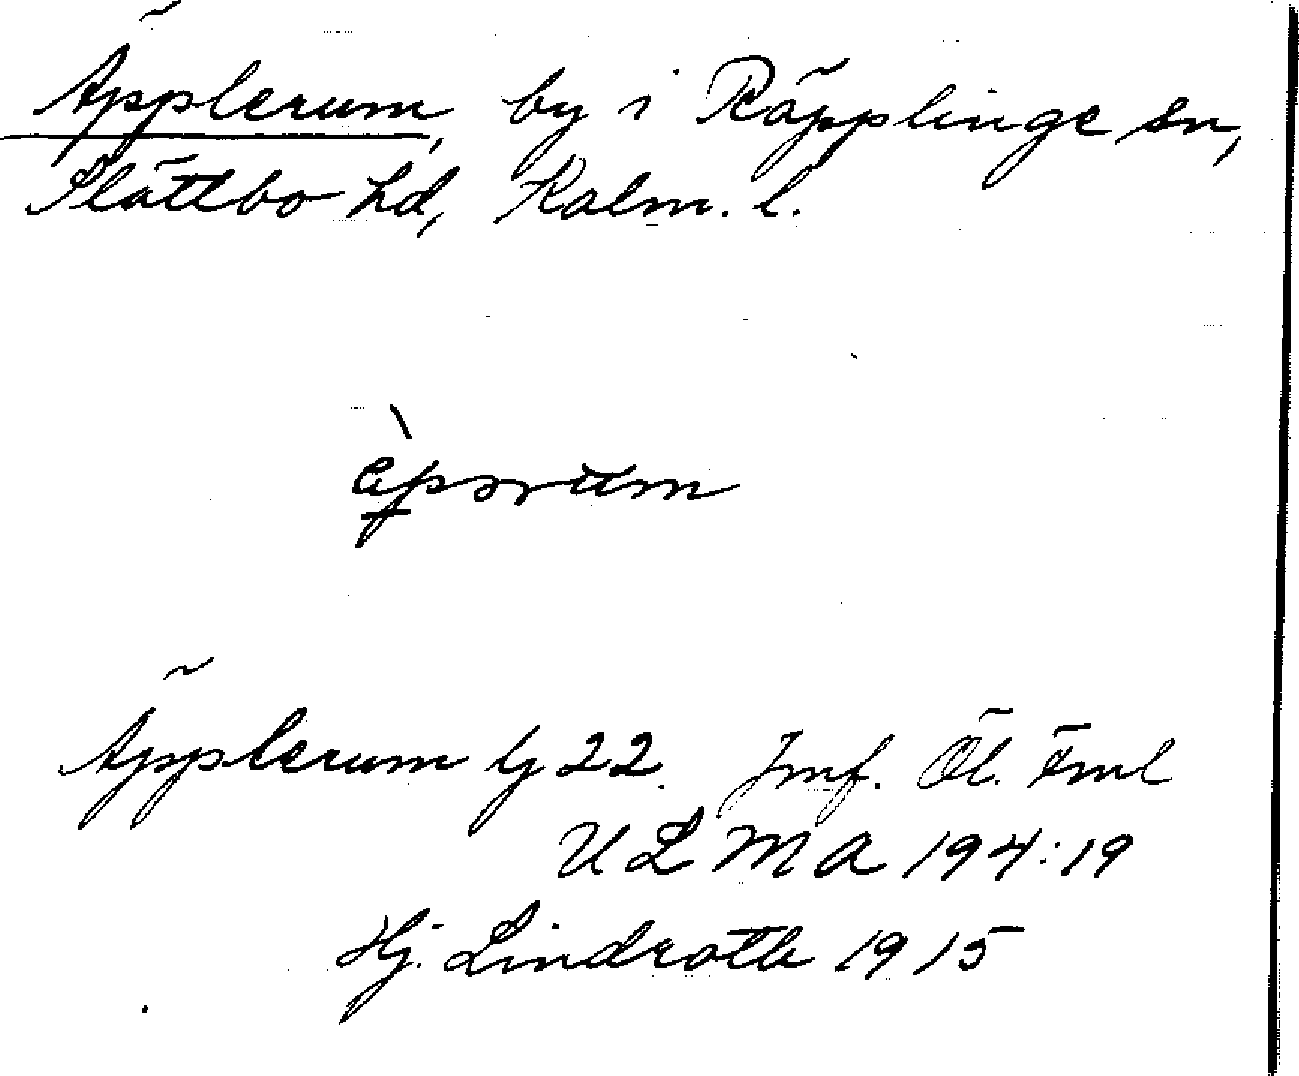 Äpplerum, by i Räpplinge sn,
Slättbo hd, Kalm. l.
äpərum
Äpplerum bj 22. Jmf. Öl. Fml
ULMA 194:19
Hj. Lindroth 1915